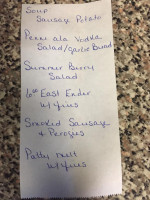 Soup
Sausage Potato
Penne ala Vodka
Salad/Garlic Bread
Summer Berry
Salad
6oz East Ender
w/fries
Smoked Sausage
& Perogies
Patty Melt
w/fries